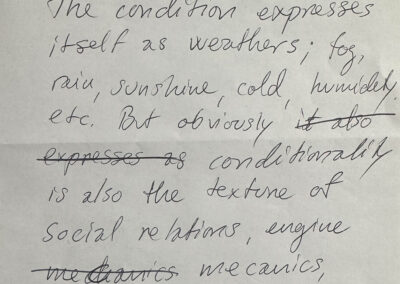 The condition expresses
itself as weathers; fog,
rain, sunshine, cold, humidety,
etc. But obviously it also
expresses as conditionality
is also the texture of
social relations, engine
mechanics mecanics,